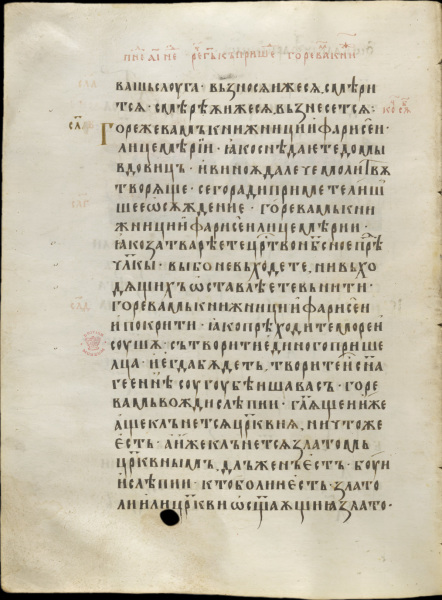 вашь слоуга · възносѧи же сѧ, съмѣри
тсѧ · съмѣрѣѫи же сѧ, възнесетсѧ :
Горе же вамъ книжници и фарисеи ·
лицемѣрїи · ꙗко снѣдаете домы
вдовиць · и виноѫ далече молитвѫ
творѧще · сего ради приимете лиш
шее ѡсѫждение · горе вамъ кни
жници и фарисеи лицемѣрїи ·
ꙗко затварѣете црⷭтво нбⷭное прѣⷣ
чл҃кы · вы бо не въходете, ни въхо
дѧщихъ ѡставлѣете вънити ·
горе вамъ книжници и фарисеи
ипокрити · ꙗко прѣходите море и
соушѫ · сътворити единого прише
лца · и егда бѫдеть, творите и сн҃а
геенѣ соугоубѣиша вась · горе
вамь вожди слѣпии · гл҃ѧщеи иже
аще кльнетсѧ цр҃квиѫ, ничтоже
есть · а иже кльнетсѧ златомъ
цр҃квнымъ, длъжень есть · боуи
и слѣпии · кто боли есть · злато
ли или цр҃кви ѡсщ҃аѫщиѫ злато ·